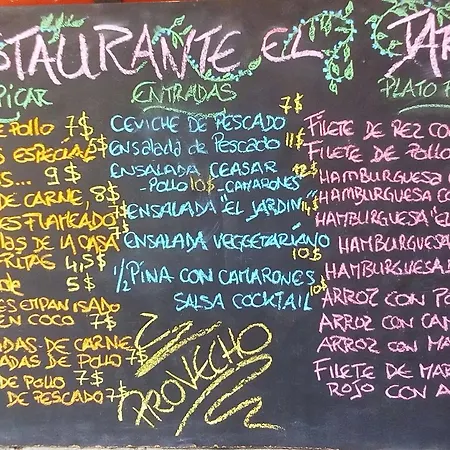 STAURANTE EL JAR
PICAR
E POLLO 7$
S ESPECIAL 5$
S... 9$
DE CARNE, 8$
ES FLAMEADO 7$
AS DE LA CASA
RITAS 4,5$
5$
ES EMPANISADO
EN COCO 7$
ADAS DE CARNE
ADAS DE POLLO 7$
DE POLLO 7$
DE PESCADO 7$
ENTRADAS
CEVICHE DE PESCADO 7$
ENSALADA DE PESCADO 11$
ENSALADA CEASAR
-POLLO 10$ -CAMARONES 12$
ENSALADA "EL JARDIN" 14$
ENSALADA VEGGETARIANO 10$
½ PINA CON CAMARONES
SALSA COCKTAIL 10$
PROVECHO
PLATO
FILETE DE REZ CO
FILETE DE POLLO
HAMBURGUESA
HAMBURGUESA CO
HAMBURGUESA "E
HAMBURGUESA
HAMBURGUESA
ARROZ CON PO
ARROZ CON CAM
ARROZ CON MA
FILETE DE MAR
ROJO CON A